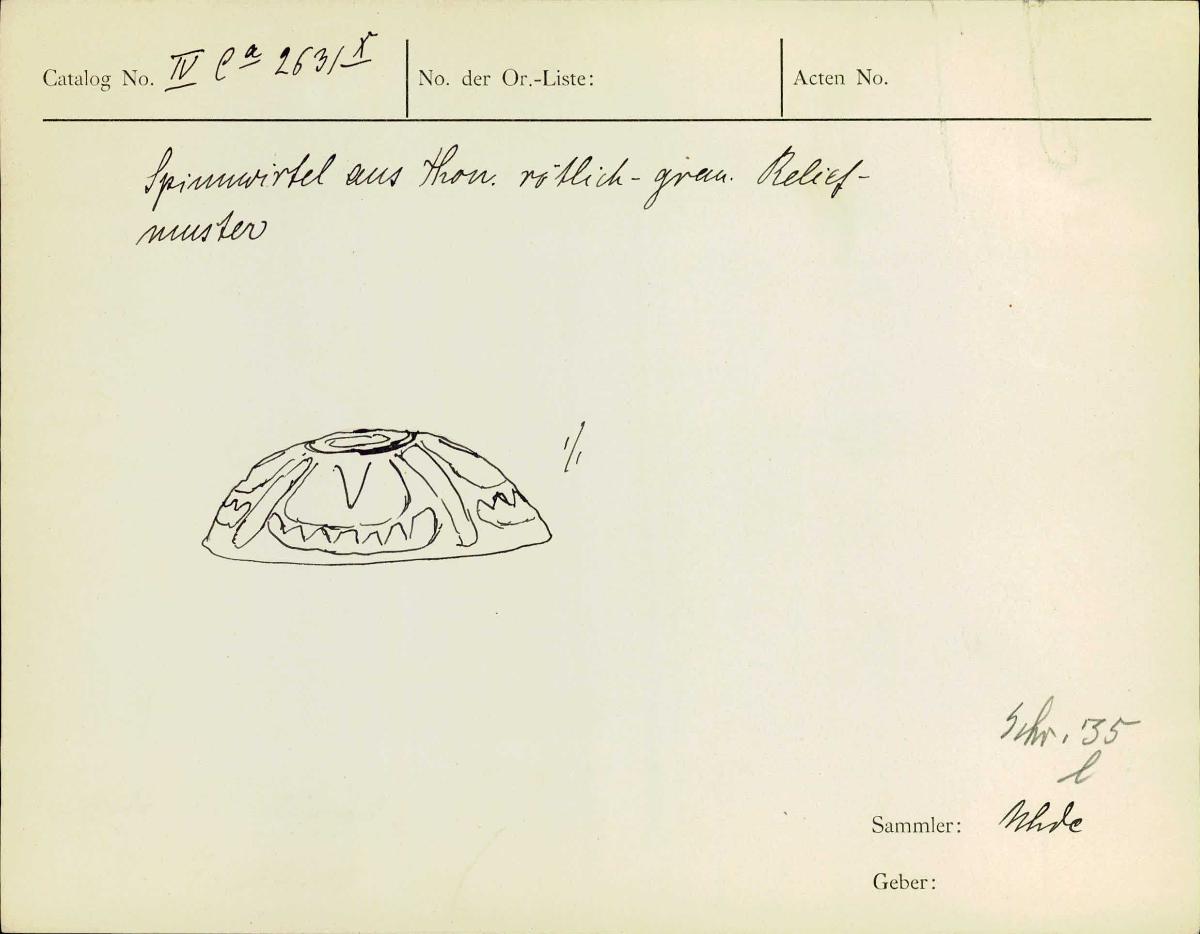 Catalog No. IV Ca 2631 x
No. der Or.-Liste:
Acten No.
Spinnwirtel aus Thon. rötlich-grau. Relief-
muster
1/1
Schr. 35
l
Sammler: Uhde
Geber: